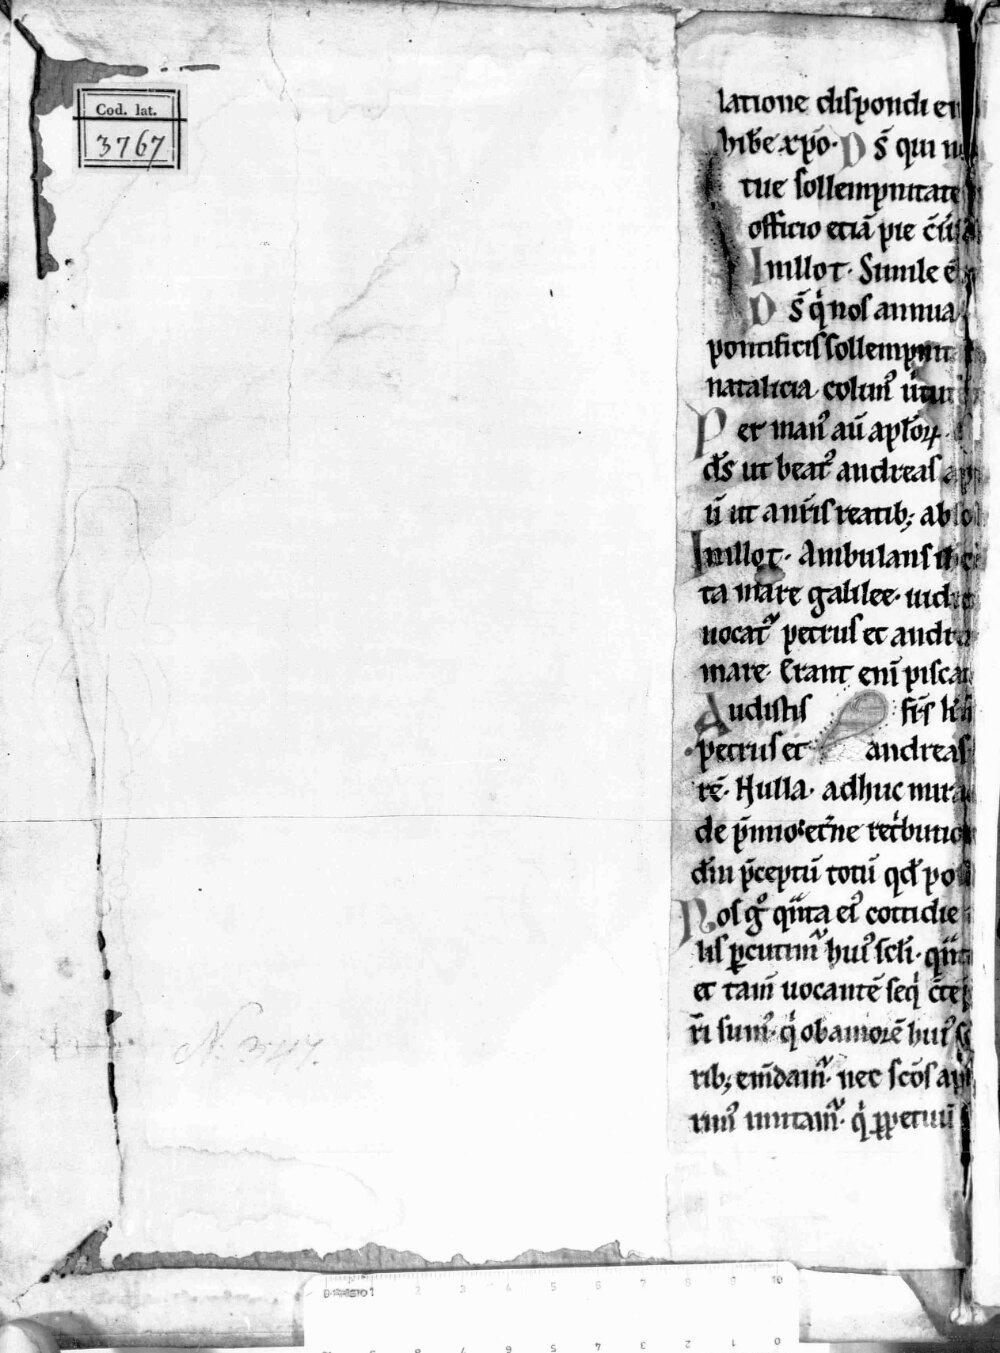 Cod. lat.
3767
latione dispondi en
hibe xp̄o. D s̄ qui n
tue sollempnitate
officio etiā pie c̄
In illo t. Simile ē
D s̄ q̇ nos annua
pontificis sollempnit
natalicia colim᾿ ut
P et man᾿ aū apl̄oꝝ
ds̄ ut beat᾿ andreas ap
ū ut a nr̄is reatib; absol
In illo t. Ambulans ih̄
ta mare galilee. uidi
uocat᷑ petrus et andre
mare. Erant enī pisca
Audistis fr̄s k̄
petrus et andreas
rē. Nulla. adhuc mira
de p̄mio et̄ne reṫbutio
dn̄i p̄ceptū totū qd̄ po
Nos g᾿ q̄nta ei᾿ cottidie
lis ꝑcutim᷑ hui᾿ scl̄i. q̄nt
et tam̄ uocantē seq̇ c̄tē
r̄i sum᾿. q̇ ob amorē hui᾿ s
rib; em̄dam᷑. nec sc̄os ap
rim᾿ imitam᷑. q̇ ꝑpetuū
N. 3
BARISTO
1 2 3 4 5 6 7 8 9 10
8 7 6 5 4 3 2 1 0